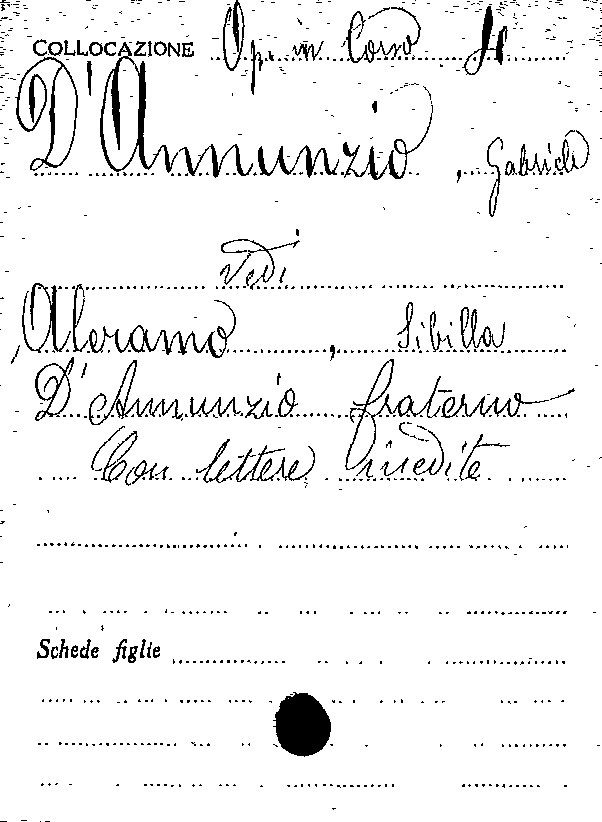 COLLOCAZIONE Op. in Corso
D'Annunzio, Gabriele
Vedi
Aleramo, Sibilla
D'Annunzio fraterno
Con lettere inedite
Schede figlie